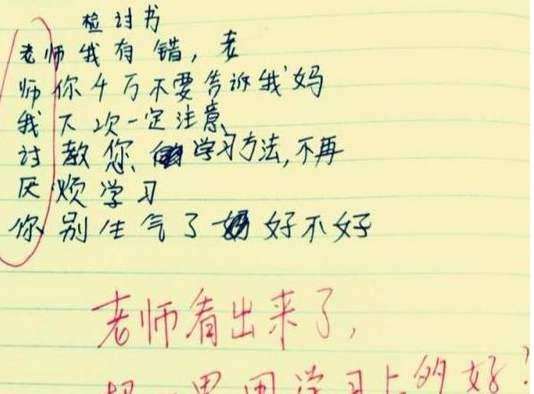 检讨书
老师我有错，老
师你千万不要告诉我妈
我下次一定注意、
讨教您 学习方法,不再
厌烦学习
你别生气了 好不好
老师看出来了，
思用学习上的好?